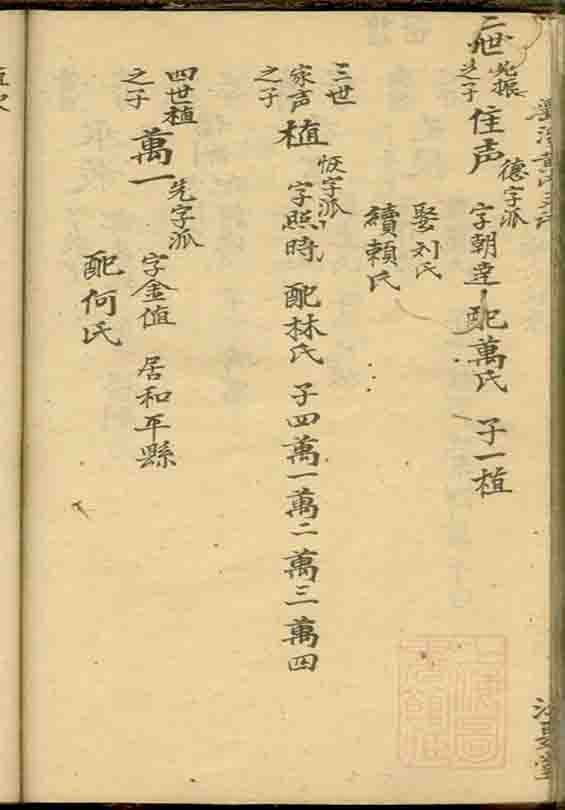 二世
兆振之子
佳声
德字派
字朝達 配萬氏 子一植
娶刘氏
續賴氏
三世
家声之子
植
恆字派
字照時 配林氏 子四萬一萬二萬三萬四
四世植之子
萬一
先字派
字金值 居和平縣
配何氏
江夏堂